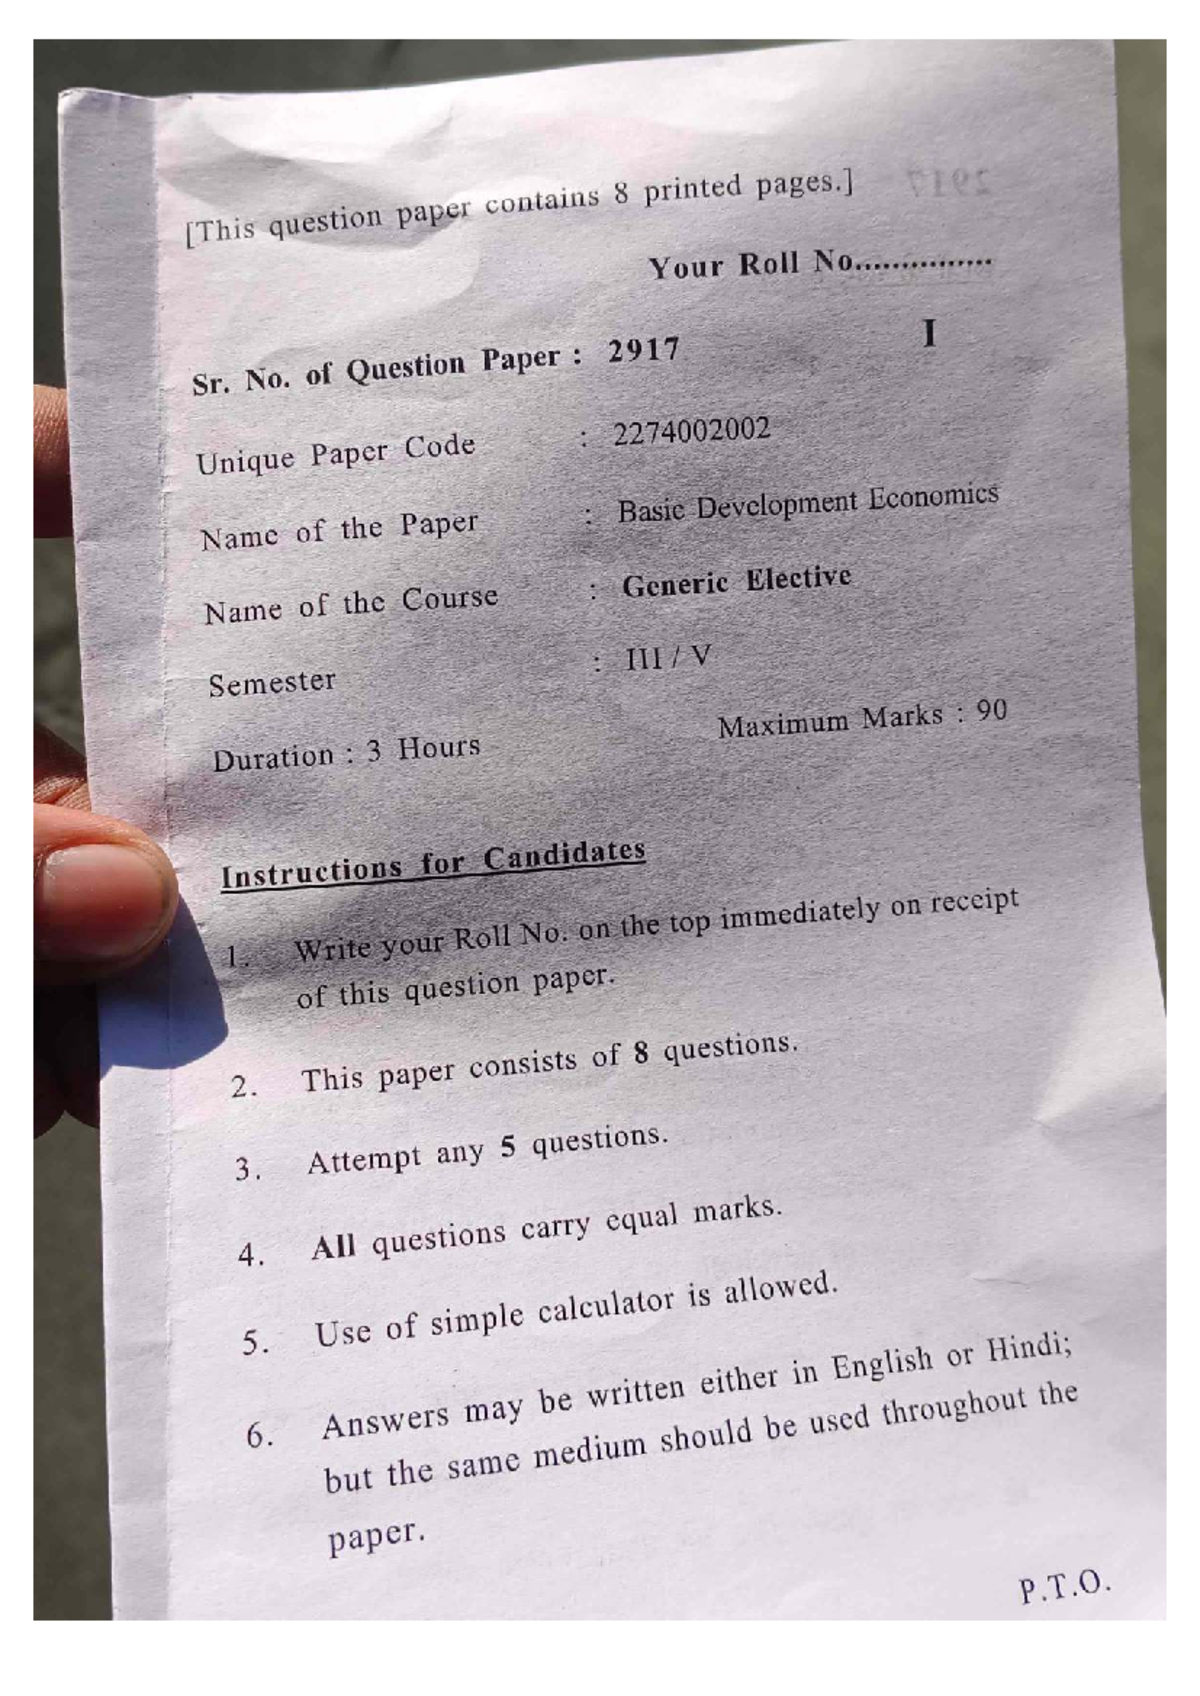 [This question paper contains 8 printed pages.]
Your Roll No...............
Sr. No. of Question Paper : 2917 I
Unique Paper Code : 2274002002
Name of the Paper : Basic Development Economics
Name of the Course : Generic Elective
Semester : III / V
Duration : 3 Hours Maximum Marks : 90
Instructions for Candidates
1. Write your Roll No. on the top immediately on receipt
of this question paper.
2. This paper consists of 8 questions.
3. Attempt any 5 questions.
4. All questions carry equal marks.
5. Use of simple calculator is allowed.
6. Answers may be written either in English or Hindi;
but the same medium should be used throughout the
paper.
P.T.O.